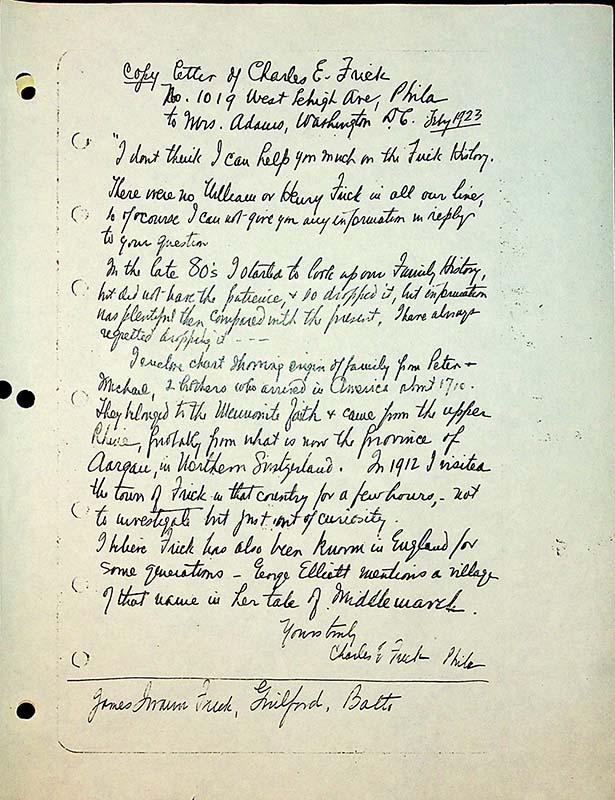 Copy letter of Charles E. Frick
No. 1019 West Lehigh Ave, Phila
to Mrs. Adams, Washington D.C. Feby 1923
"I dont think I can help you much on the Frick History.
There were no William or Henry Frick in all our line,
so of course I can not give you any information in reply
to your question
In the late 80's I started to look up our Family History,
but did not have the patience, & so dropped it, but information
was plentiful then compared with the present. I have always
regretted dropping it - - -
I enclose chart showing origin of family from Peter &
Michael, 2 brothers who arrived in America about
They belonged to the Mennonite faith & came from the upper
Rhine, probably from what is now the province of
Aargau, in Northern Switzerland. In 1912 I visited
the town of Frick in that country for a few hours, - not
to investigate but just out of curiosity.
I believe Frick has also been known in England for
some generations - George Elliott mentions a village
of that name in her tale of Middlemarch.
Yours truly
Charles E Frick Phila
James Frick, Guilford, Balto